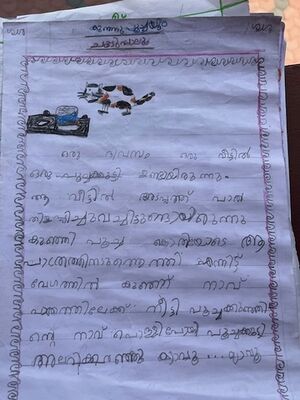 കുഞ്ഞു പൂച്ചയും
ചൂടുപാലും
ഒരു ദിവസം ഒരു വീട്ടിൽ
ഒരു പൂച്ചക്കുട്ടി ഉണ്ടായിരുന്നു.
ആ വീട്ടിൽ അടുപ്പത്ത് പാൽ
തിളപ്പിച്ചുവച്ചിട്ടുണ്ടായിരുന്നു
കുഞ്ഞി പൂച്ച കൊതിയോടെ ആ
പാത്രത്തിനടുത്തെത്തി എന്നിട്ട്
വേഗത്തിൽ കുഞ്ഞ് നാവ്
പാത്രത്തിലേക്ക് നീട്ടി പൂച്ചക്കുഞ്ഞി
ന്റെ നാവ് പൊള്ളിപോയി പൂച്ചക്കുട്ടി
അലറിക്കരഞ്ഞു മ്യാവൂ...മ്യാവൂ